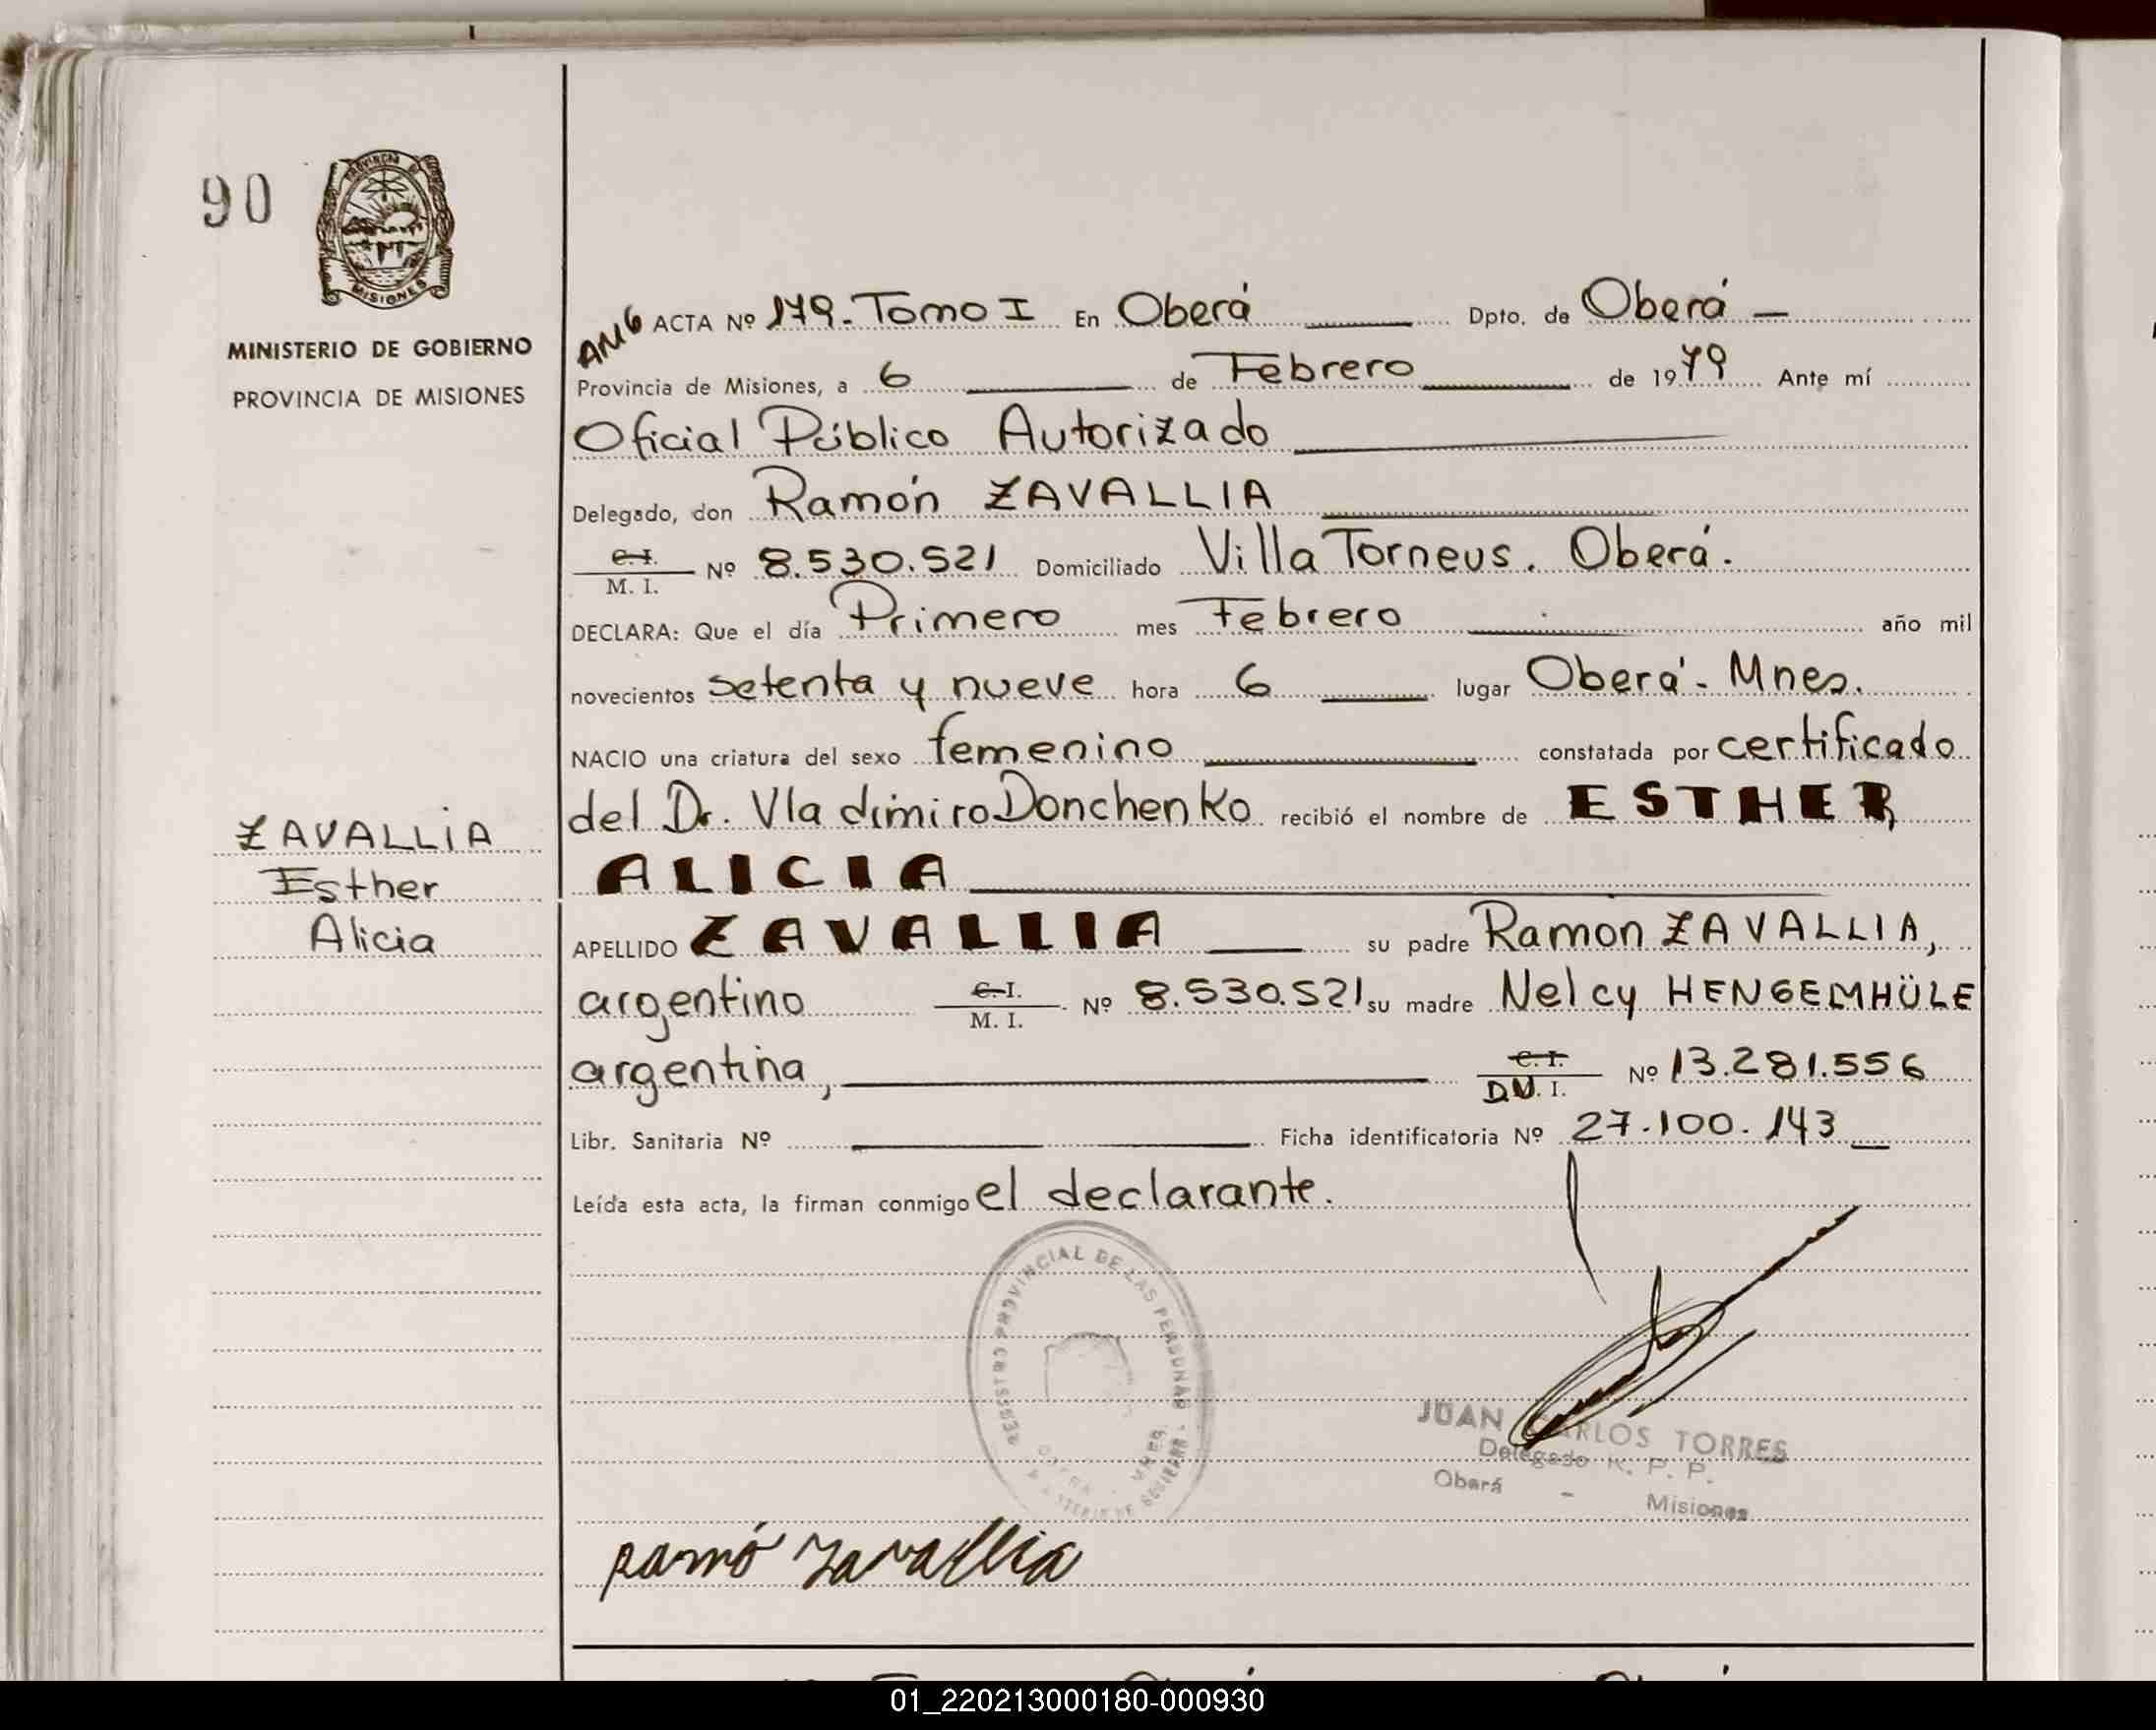 90
PROVINCIA DE
MISIONES
MINISTERIO DE GOBIERNO
PROVINCIA DE MISIONES
ACTA Nº 179. Tomo I En Oberá Dpto. de Oberá
Provincia de Misiones, a 6 de Febrero de 1979 Ante mí
Oficial Público Autorizado
Delegado, don Ramón ZAVALLIA
C. I.
M. I. Nº 8.530.521 Domiciliado Villa Torneus. Oberá.
DECLARA: Que el día Primero mes Febrero año mil
novecientos setenta y nueve hora 6 lugar Oberá - Mnes.
NACIO una criatura del sexo femenino constatada por certificado
del Dr. Vladimiro Donchenko recibió el nombre de ESTHER
ALICIA
ZAVALLIA
Esther
Alicia
APELLIDO ZAVALLIA su padre Ramon ZAVALLIA,
argentino C. I.
M. I. Nº 8.530.521 su madre Nelcy HENGEMHÜLE
argentina, C. I.
D.N. I. Nº 13.281.556
Libr. Sanitaria Nº Ficha identificatoria Nº 27.100.143
Leída esta acta, la firman conmigo el declarante.
REGISTRO PROVINCIAL DE LAS PERSONAS
JUAN CARLOS TORRES
Delegado R. P. P.
Oberá - Misiones
ramó zavallia
01_220213000180-000930